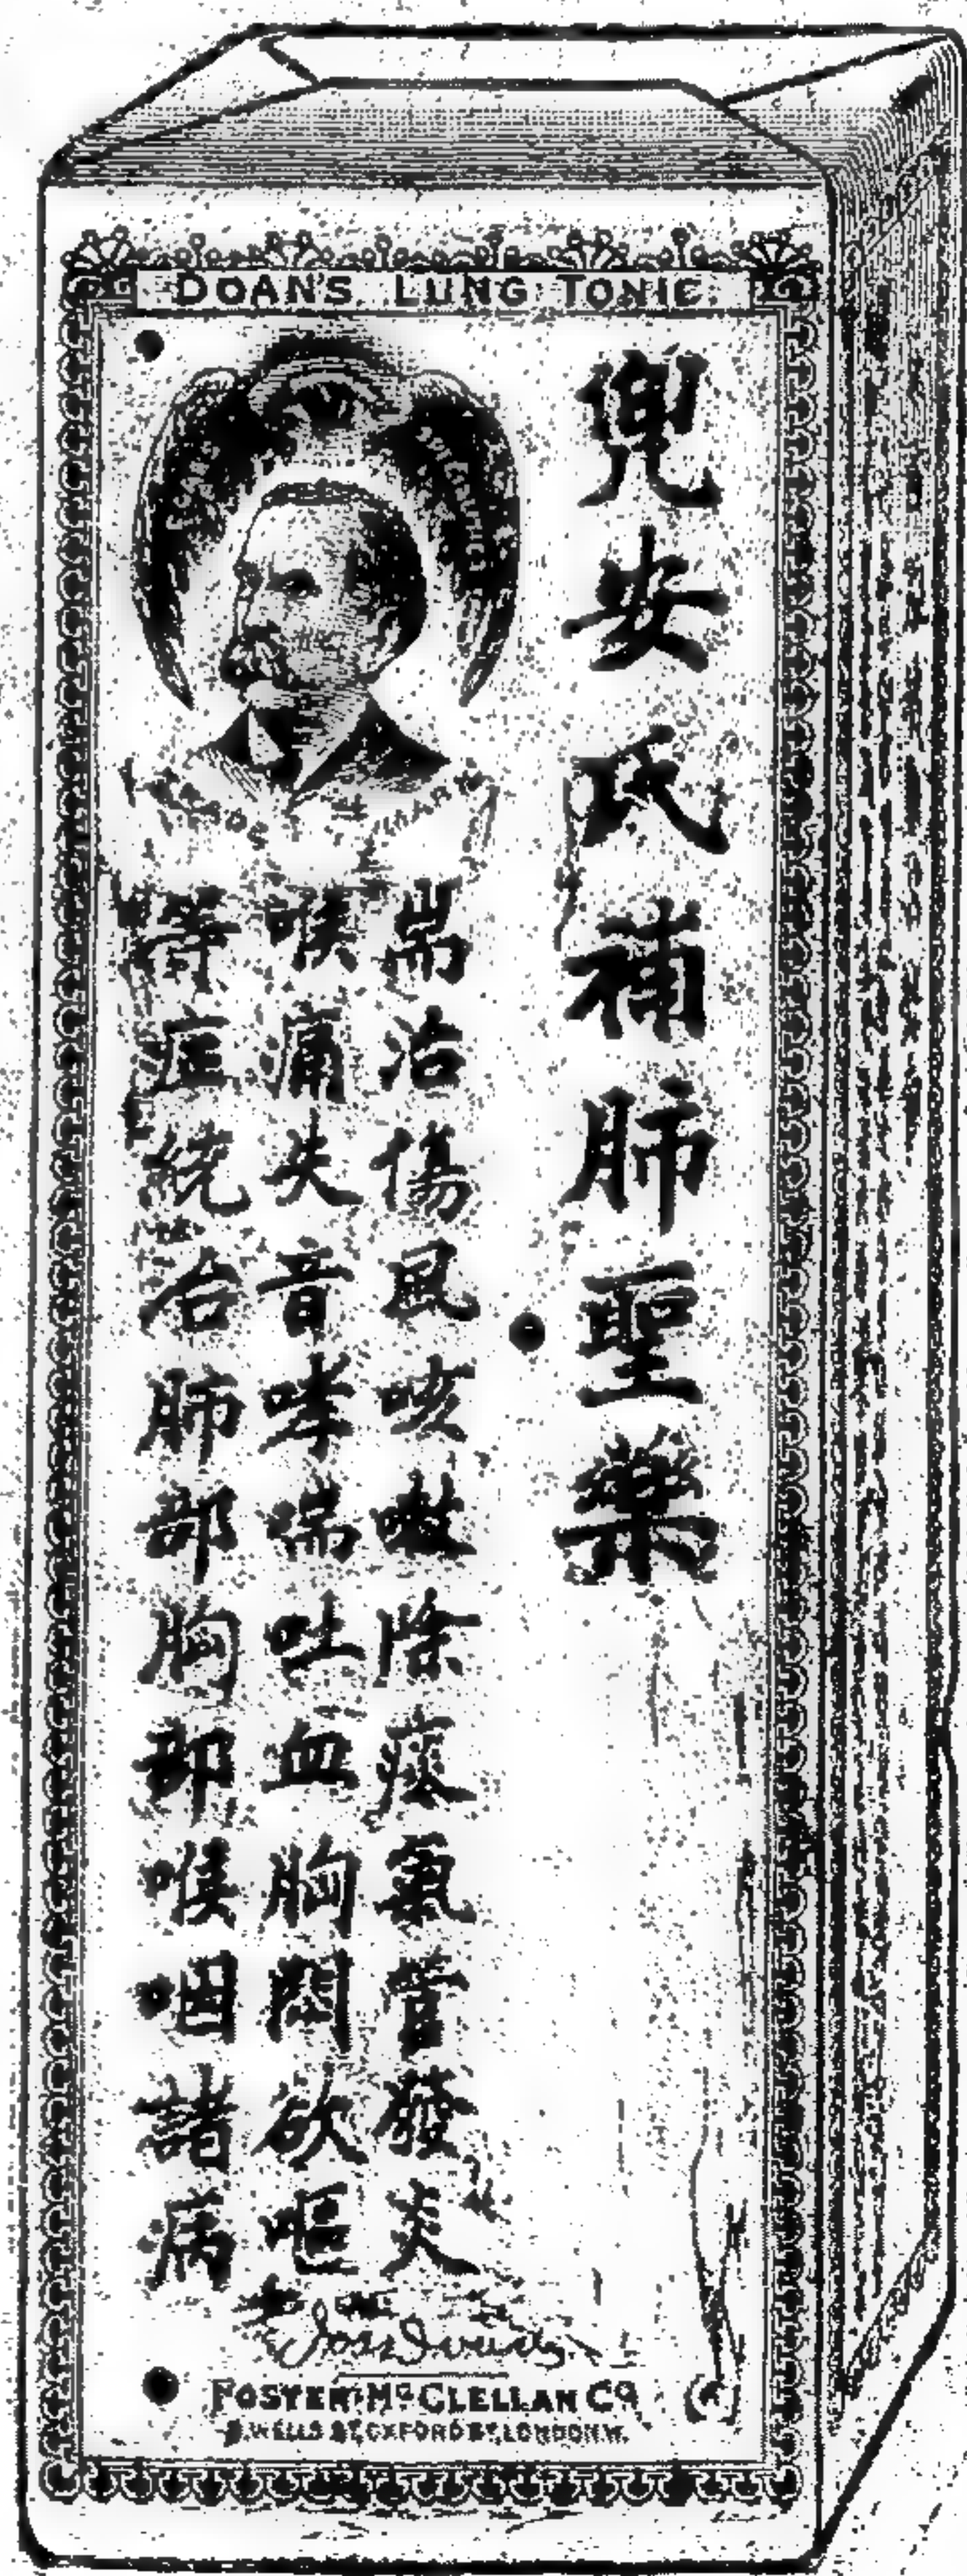 DOAN'S LUNG TONIC.
兜安氏補肺聖藥
耑治傷風咳嗽除痰氣管發炎
喉痛失音哮喘吐血胸悶欲嘔
等症統治肺部胸部喉咽諸病
FOSTER-McCLELLAN Co
8, WELLS ST, OXFORD ST, LONDON. W.